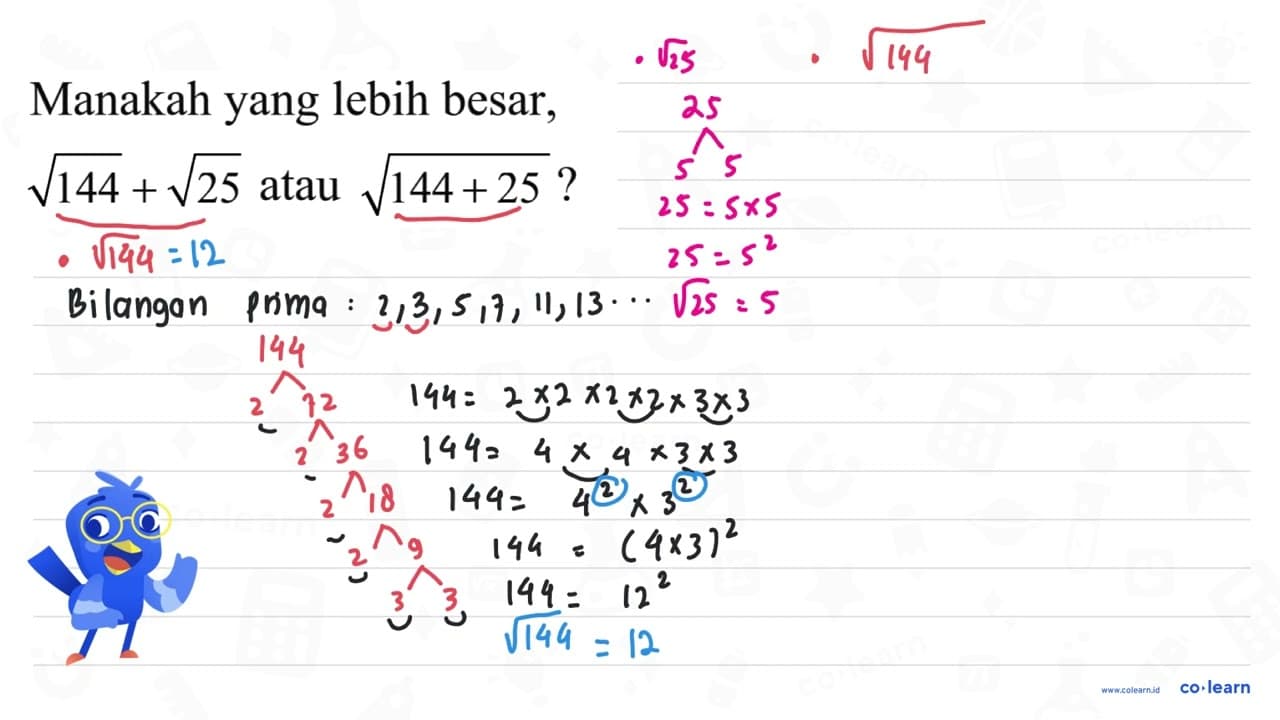 Manakah yang lebih besar,
√144 + √25 atau √(144 + 25) ?
• √144 = 12
Bilangan prima : 2, 3, 5, 7, 11, 13 ...
144
2 72
2 36
2 18
2 9
3 3
144 = 2 × 2 × 2 × 2 × 3 × 3
144 = 4 × 4 × 3 × 3
144 = 4² × 3²
144 = (4 × 3)²
144 = 12²
√144 = 12
• √25
25
5 5
25 = 5 × 5
25 = 5²
√25 = 5
• √144
www.colearn.id co·learn